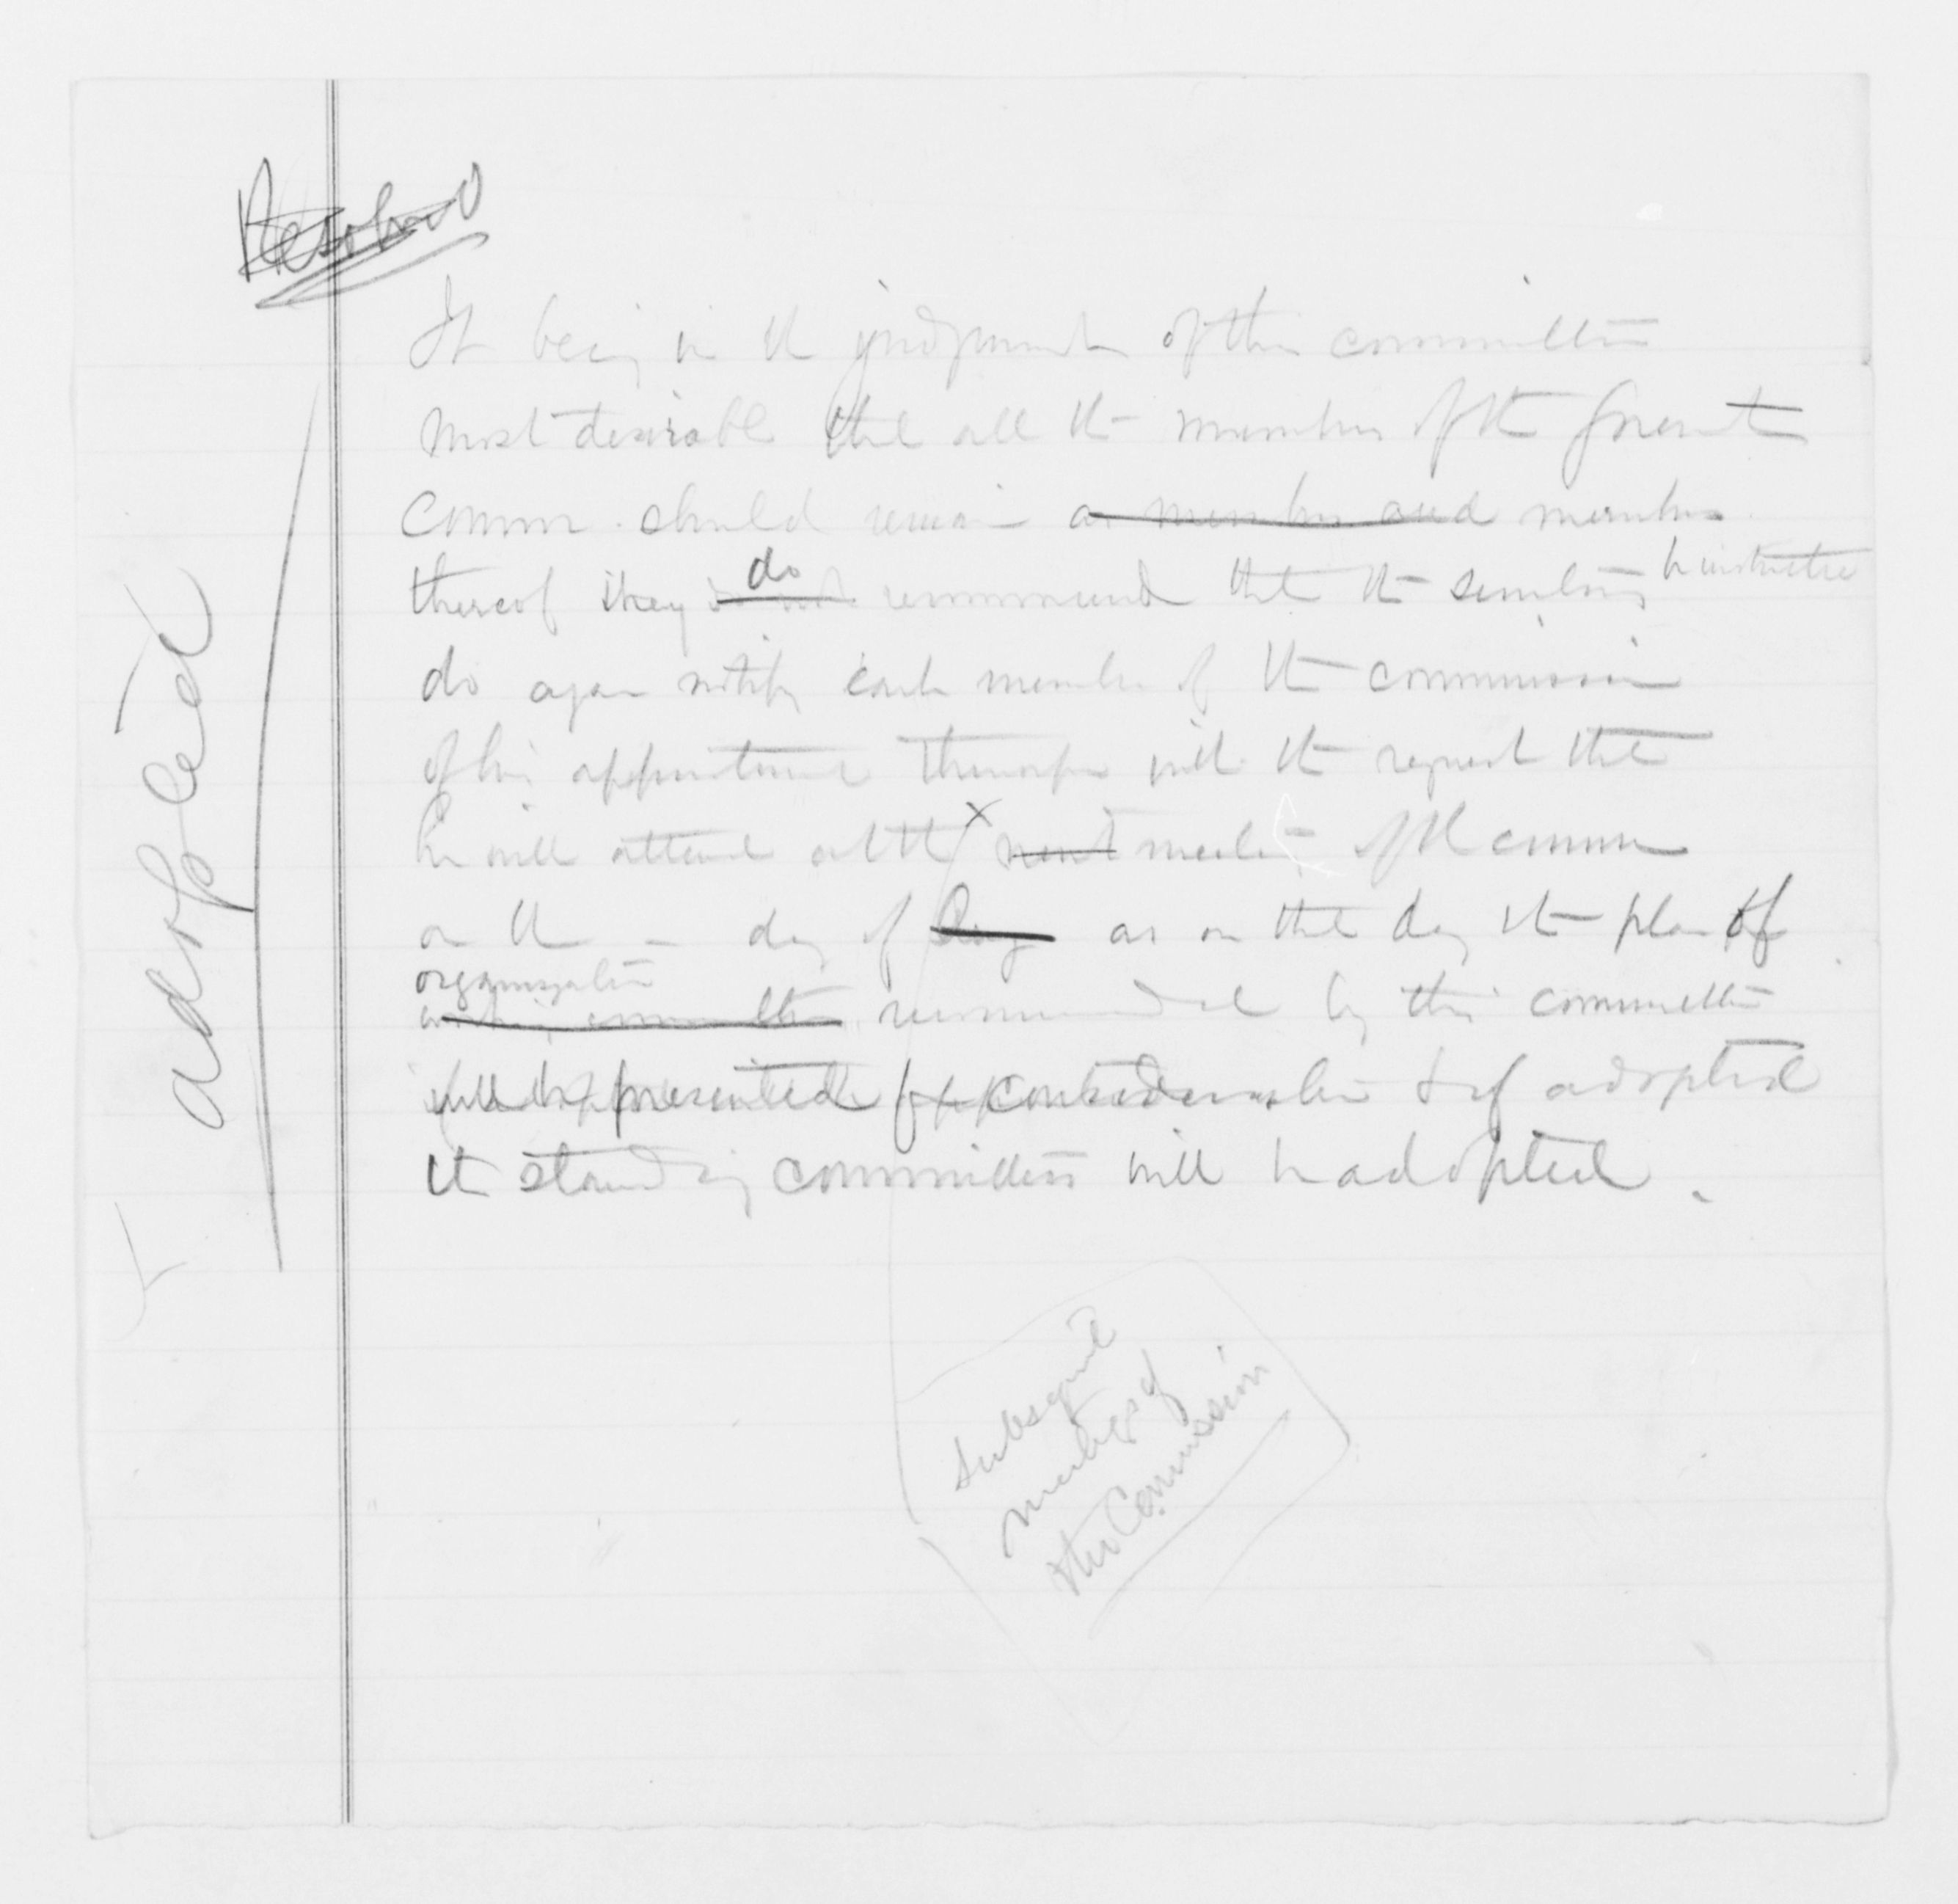 Resolved
It being in the judgment of this committee
most desirable that all the members of the present
Comm. should remain as members and members
thereof they do recommend that the be instructed
do again notify each member of the commission
of his appointment with the request that
he will attend at the x next meeting of the comm
on the – day of as on that day the plan of
organization
working committee recommended by this committee
will be presented for consideration & if adopted
the standing committees will be adopted.
adopted
Subsequent
meetings of
the Commission